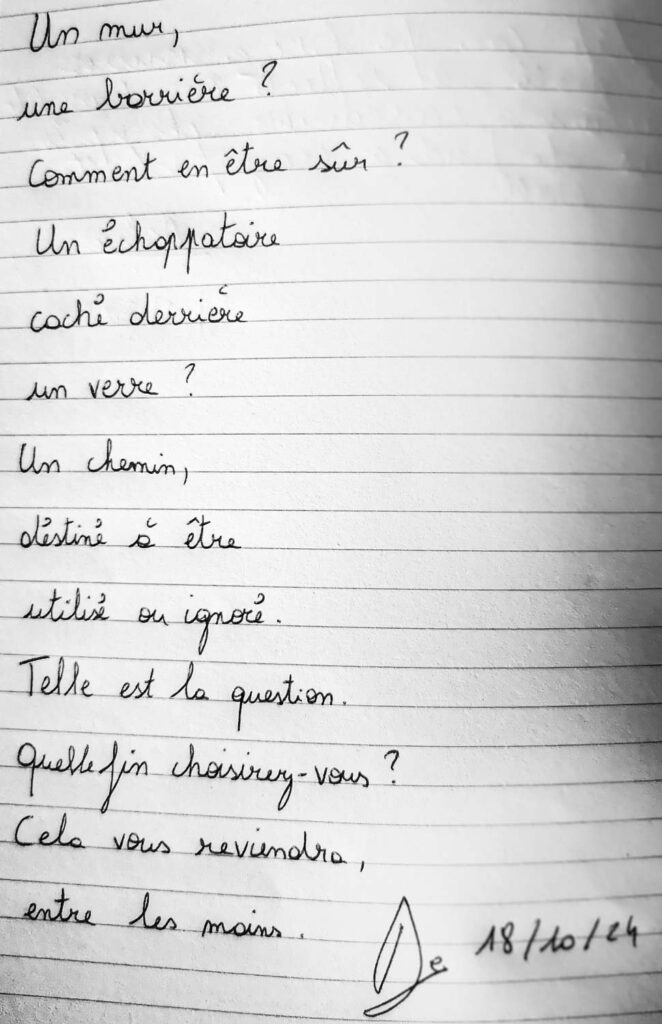 Un mur,
une barrière ?
Comment en être sûr ?
Un échappatoire
caché derrière
un verre ?
Un chemin,
déstiné à être
utilisé ou ignoré.
Telle est la question.
Quelle fin choisirez-vous ?
Cela vous reviendra,
entre les mains.
18/10/24